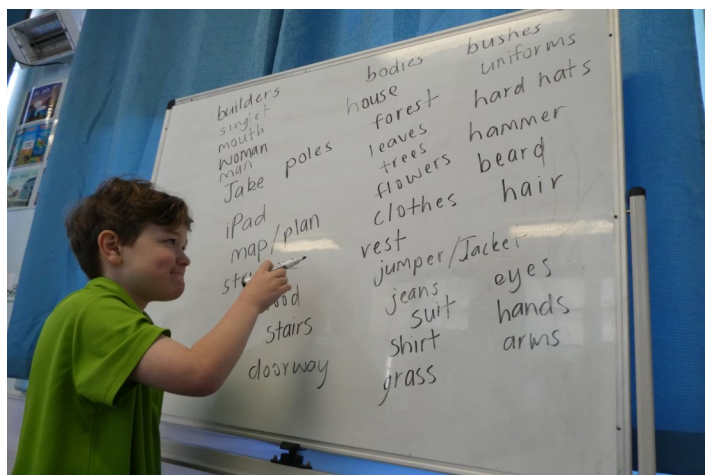 builders
singlet
mouth
woman
man
Jake
poles
iPad
map/plan
stairs
doorway
bodies
house
forest
leaves
trees
flowers
clothes
vest
jumper/Jacket
jeans
suit
shirt
grass
bushes
uniforms
hard hats
hammer
beard
hair
eyes
hands
arms